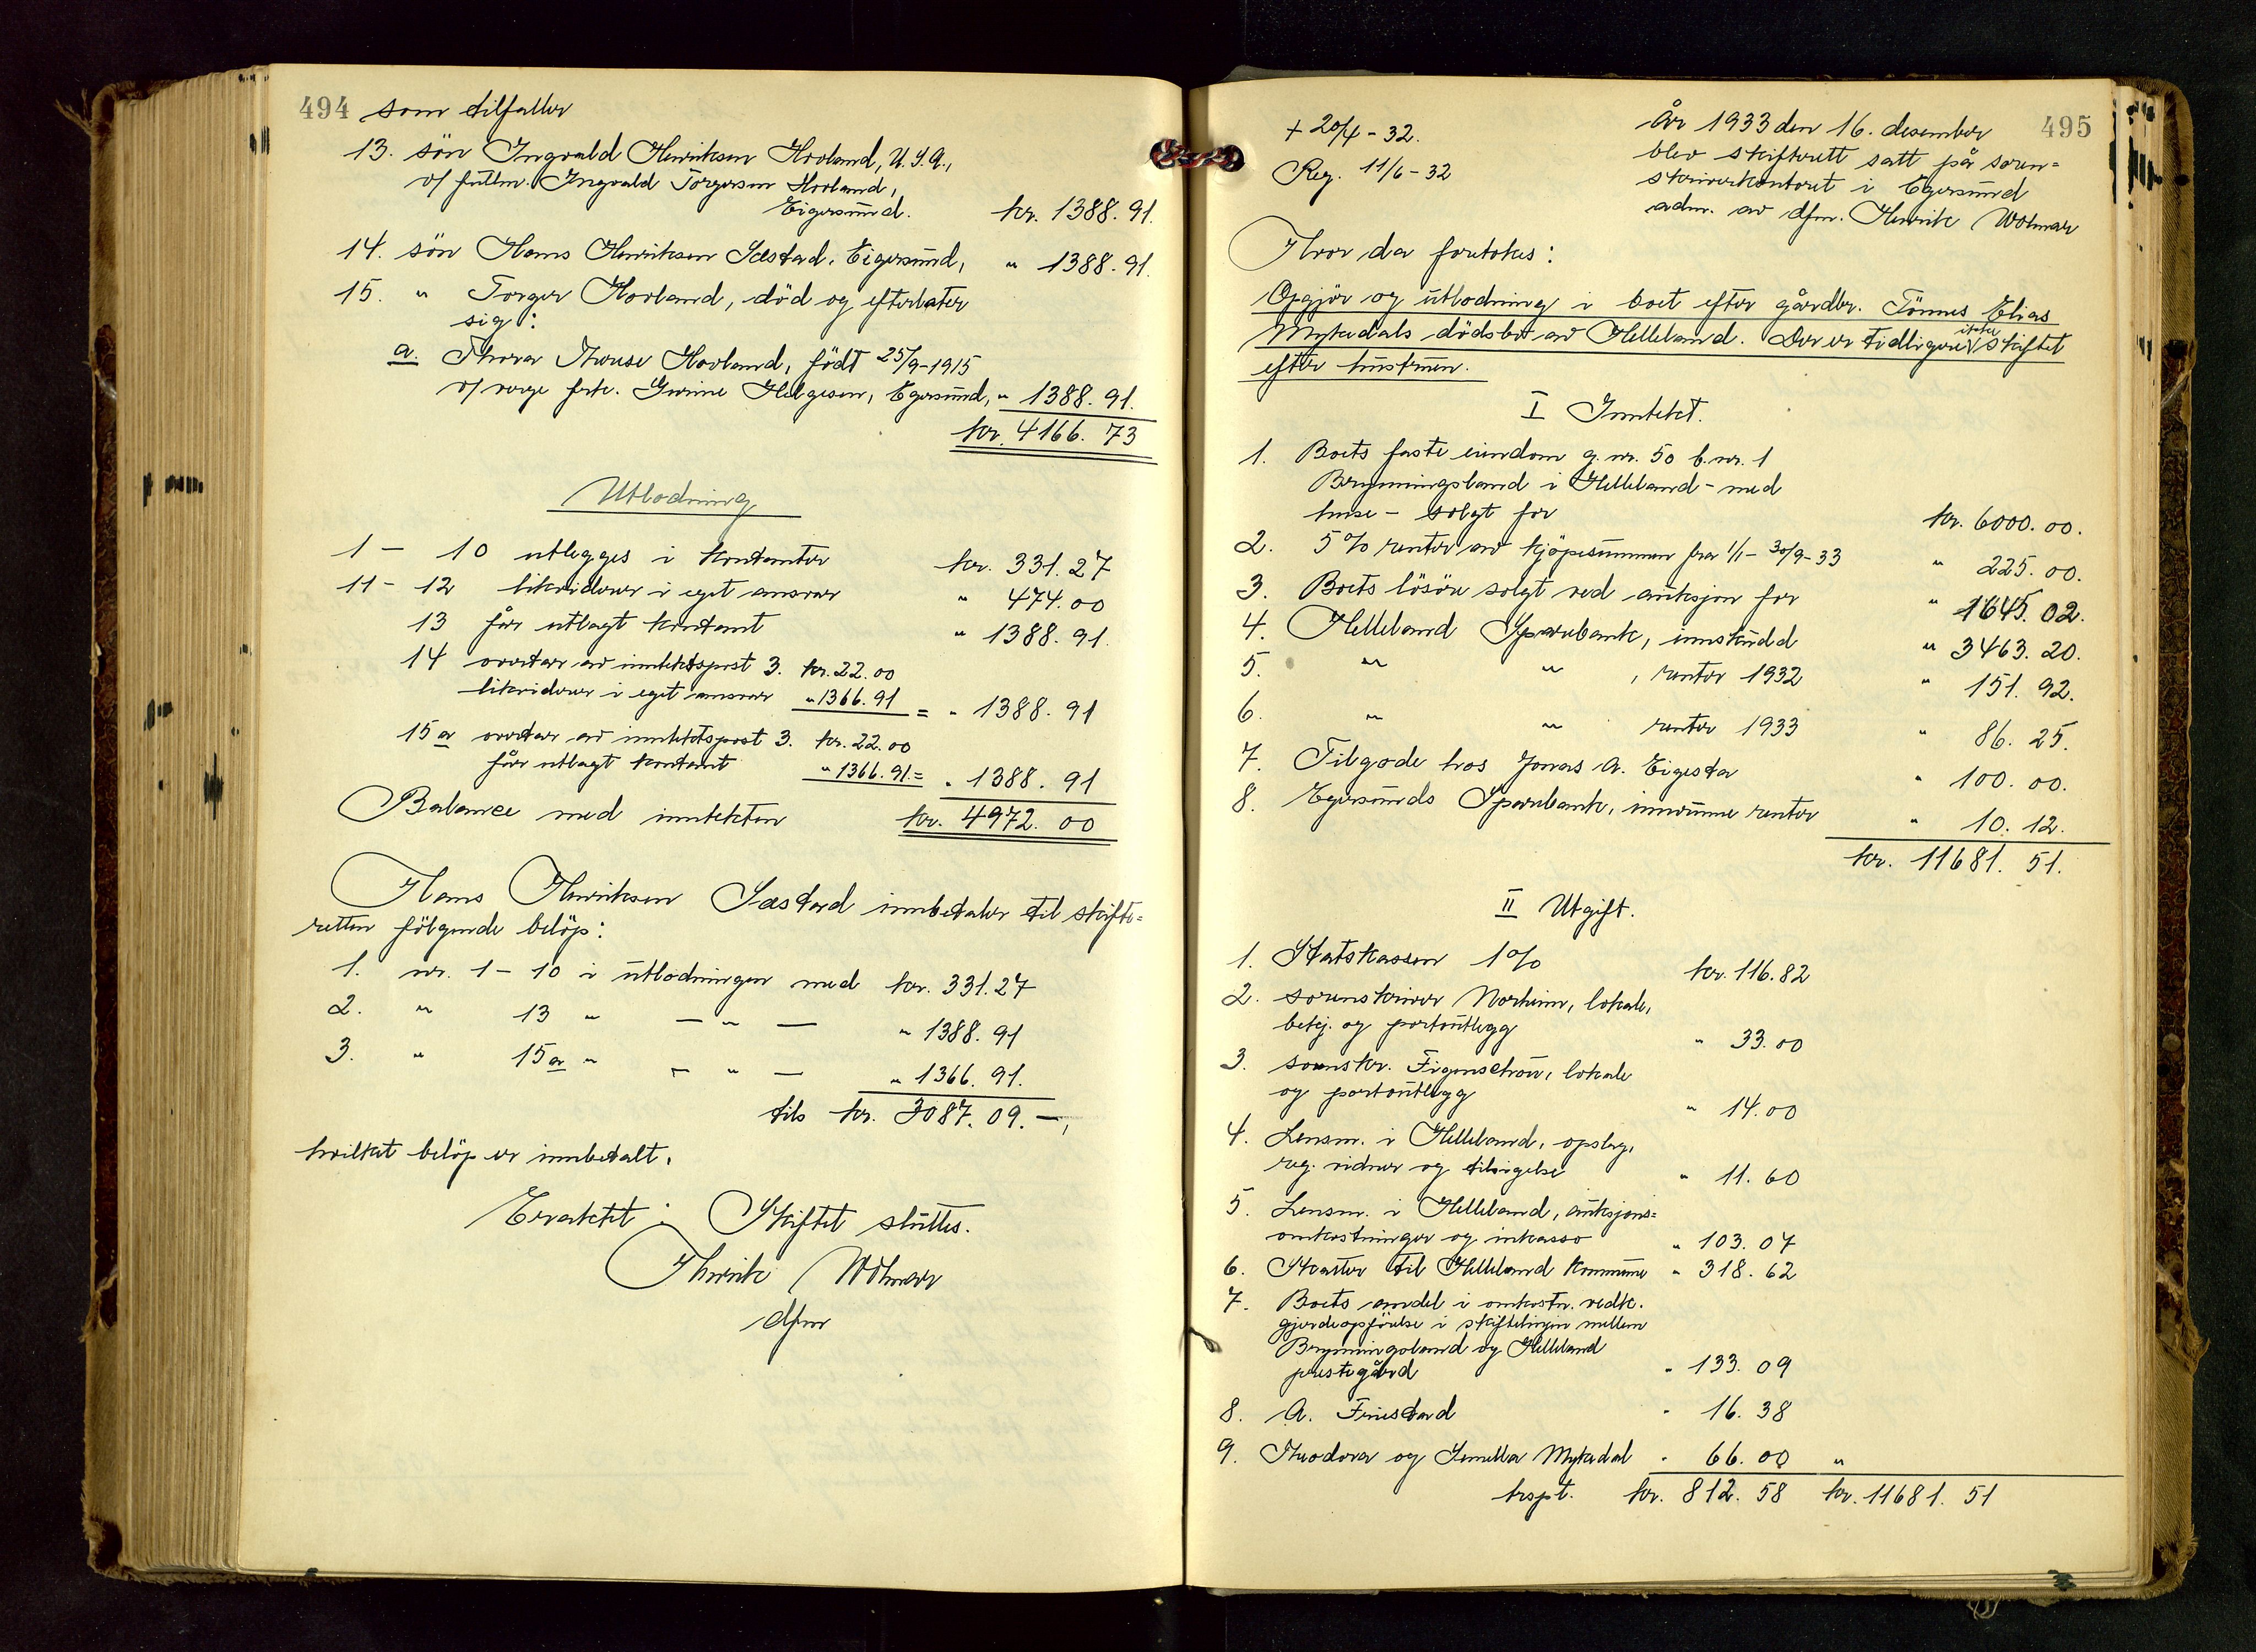 494 som tilfaller
13. sön Ingvald Henriksen Hovland, U.S.A.,
v/ fullm. Ingvald Torgersen Hovland,
Eigersund. kr. 1388.91.
14. sön Hans Henriksen Sæstad, Eigersund, " 1388.91.
15. " Torger Hovland, död og efterlater
sig:
a. Thora Therese Hovland, født 25/9-1915
v/ verge frk. Gurine Helgesen, Egersund, " 1388.91.
kr. 4166.73
Utlodning
1 - 10 utlegges i kontanter kr. 331.27
11 - 12 likviderer i eget ansvar " 474.00
13 får utlagt kontant " 1388.91.
14 overtar av inntektspost 3. kr. 22.00
likviderer i eget ansvar " 1366.91 = " 1388.91
15 a overtar av inntektspost 3. kr. 22.00
får utlagt kontant " 1366.91 = " 1388.91
Balance med inntekten kr. 4972.00
Hans Henriksen Sæstad innbetaler til skifte=
retten følgende beløp:
1. nr. 1 - 10 i utlodningen med kr. 331.27
2. " 13 " — " — " 1388.91
3. " 15 a " — " — " 1366.91.
tils kr. 3087.09.—,
hvilket beløp er innbetalt.
Eraktet: Skiftet sluttes.
Henrik Wolmar
dfm
495
+ 20/4 - 32.
Reg. 11/6 - 32
År 1933 den 16. desember
blev skifterett satt på soren=
skriverkontoret i Egersund
adm. av dfm. Henrik Wolmar
Hvor da foretokes:
Opgjör og utlodning i boet efter gårdbr. Tönnes Elias
Mykedals dödsbo av Helleland. Der er tidligere ikke skiftet
efter hustruen.
I Inntekt.
1. Boets faste eiendom g. nr. 50 b. nr. 1
Bryningsland i Helleland - med
huse - solgt for kr. 6000.00.
2. 5% renter av kjöpesummen fra 1/1 - 30/9 - 33 " 225.00.
3. Boets lösöre solgt ved auksjon for " 1645.02.
4. Helleland Sparebank, innskudd " 3463.20.
5. " " , renter 1932 " 151.92.
6. " " renter 1933 " 86.25.
7. Tilgode hos Jonas A. Eigesta " 100.00.
8. Egersunds Sparebank, innvunne renter " 10.12.
kr. 11681.51.
II Utgift.
1. Statskassen 1% kr. 116.82
2. sorenskriver Norheim, lokale,
betj. og portoutlegg " 33.00
3. sorenskr. Figenschou, lokale
og portoutlegg " 14.00
4. Lensm. i Helleland, opslag,
reg. vidner og tilsigelse " 11.60
5. Lensm. i Helleland, auksjons=
omkostninger og inkasso " 103.07
6. Skatter til Helleland kommune " 318.62
7. Boets andel i omkostn. vedk.
gjerdeopførelse i skiftelinjen mellem
Bryningsland og Helleland
prestegård " 133.09
8. A. Fuestad " 16.38
9. Theodora og Semilla Mykedal " 66.00 "
trspt. kr. 812.58 kr. 11681.51